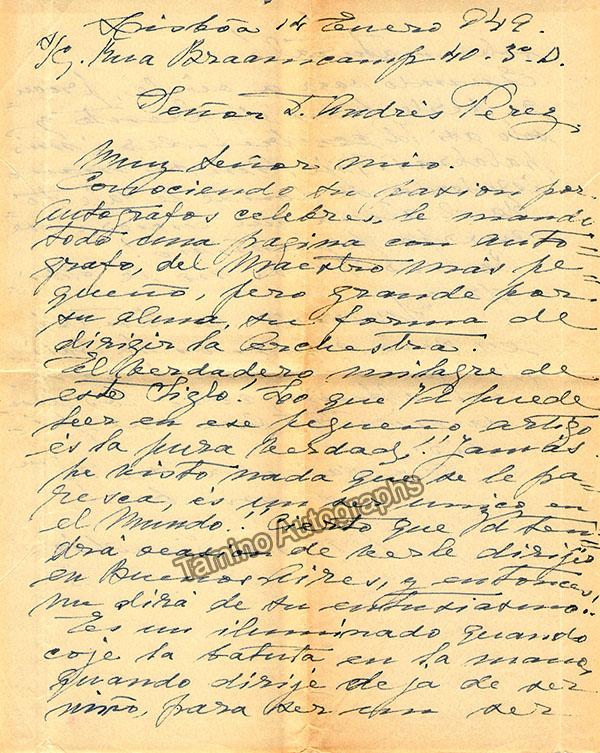 Lisbôa 14 Enero 949.
S/C. Rua Braamcamp 40. 3º. D.
Señor D. Andrés Perez,
Muy Señor mio.
Conociendo su passion por
autografos celebres, le mando
todo una pagina con auto-
grafo, del Maestro más pe-
queño, pero grande por
su alma, su forma de
dirigir la Orchestra.
El Verdadero milagro de
este Siglo! Lo que Vd puede
leer en ese pequeño artigo
és la pura verdad!! Jamás
he visto nada que se le pa-
resca, és un unico en
el Mundo!! que Vd ten
drá ocasion de verle dirigir
en Buenos Aires, y entonces,
me dirá de su entusiasmo..
Es un iluminado quando
coje la batuta en la mano,
quando dirije deja de ser
niño, para ser un ser
Tamino Autographs